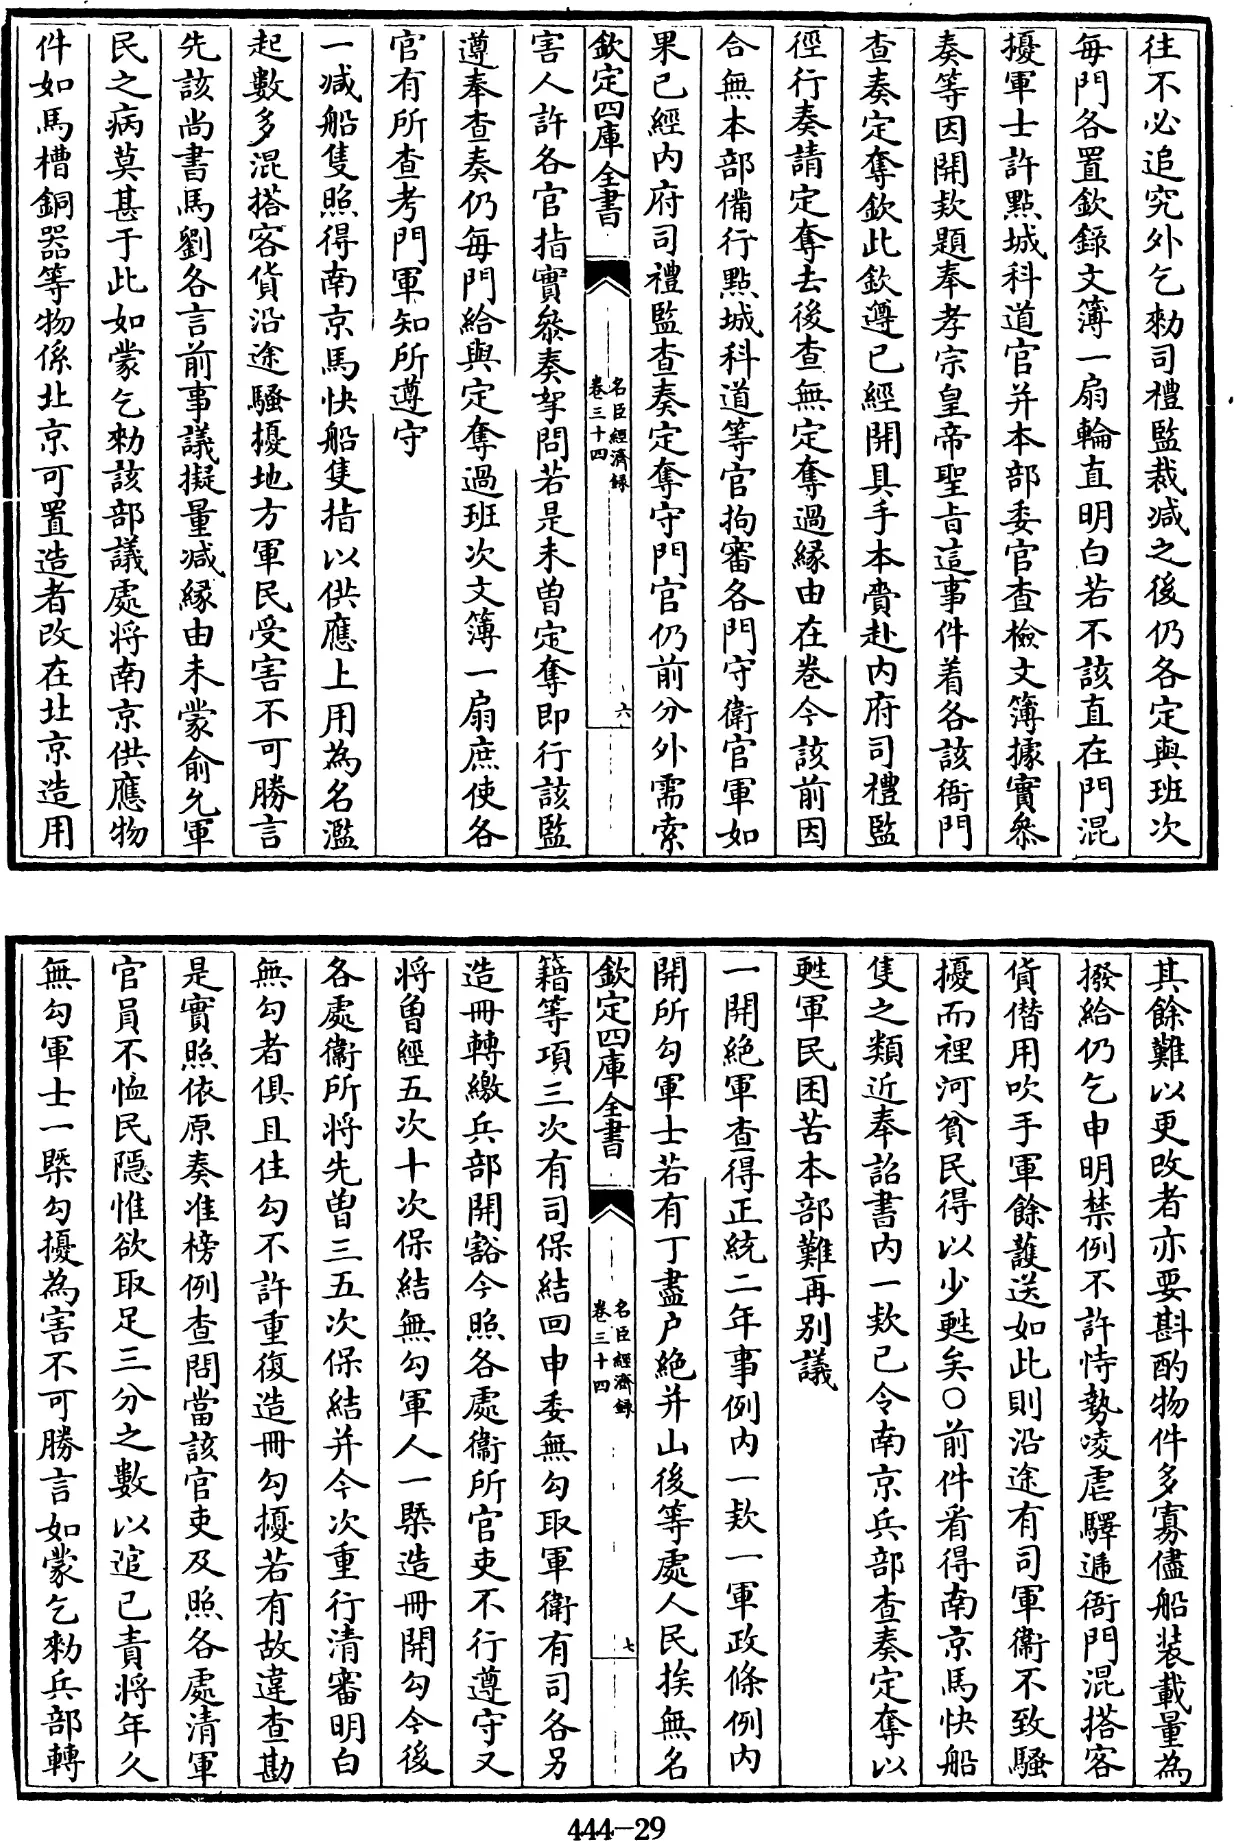 往不必追究外乞勑司禮監裁減之後仍各定與班次
每門各置欽錄文簿一扇輪直明白若不該直在門混
擾軍士許點城科道官并本部委官查檢文簿據實叅
奏等因開欵題奉孝宗皇帝聖旨這事件着各該衙門
查奏定奪欽此欽遵已經開具手本賫赴内府司禮監
徑行奏請定奪去後查無定奪過縁由在卷今該前因
合無本部備行點城科道等官拘審各門守衛官軍如
果已經内府司禮監查奏定奪守門官仍前分外需索
欽定四庫全書
名臣經濟録
卷三十四
六
害人許各官指實叅奏挐問若是未曾定奪即行該監
遵奉查奏仍每門給與定奪過班次文簿一扇庶使各
官有所查考門軍知所遵守
一減船隻照得南京馬快船隻指以供應上用為名濫
起數多混搭客貨沿途騷擾地方軍民受害不可勝言
先該尚書馬劉各言前事議擬量減縁由未蒙俞允軍
民之病莫甚于此如蒙乞勑該部議處将南京供應物
件如馬槽銅器等物係北京可置造者改在北京造用
其餘難以更改者亦要斟酌物件多寡儘船装載量為
撥給仍乞申明禁例不許恃勢凌虐驛逓衙門混搭客
貨借用吹手軍餘護送如此則沿途有司軍衛不致騷
擾而裡河貧民得以少甦矣○前件㸔得南京馬快船
隻之類近奉詔書内一欵已令南京兵部查奏定奪以
甦軍民困苦本部難再别議
一開絶軍查得正統二年事例内一欵一軍政條例内
開所勾軍士若有丁盡户絶并山後等處人民挨無名
欽定四庫全書
名臣經濟録
卷三十四
七
籍等項三次有司保結回申委無勾取軍衛有司各另
造冊轉繳兵部開豁今照各處衛所官吏不行遵守又
将曽經五次十次保結無勾軍人一槩造冊開勾今後
各處衛所将先曽三五次保結并今次重行清審明白
無勾者俱且住勾不許重復造冊勾擾若有故違查勘
是實照依原奏准榜例查問當該官吏及照各處清軍
官員不恤民隱惟欲取足三分之數以逭已責将年久
無勾軍士一槩勾擾為害不可勝言如蒙乞勑兵部轉
444-29